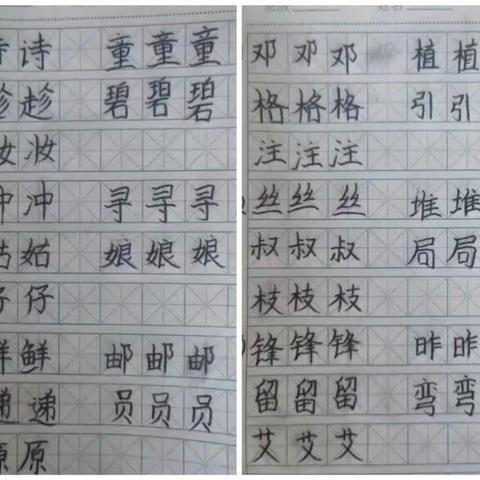 诗诗 童童童
趁趁 碧碧碧
妆妆
冲冲 寻寻寻
姑姑 娘娘娘
仔仔
鲜鲜 邮邮邮
递递 员员员
原原
邓邓邓 植植
格格格 引引
注注注
丝丝丝 堆堆
叔叔叔 局局
枝枝枝
锋锋锋 昨昨
留留留 弯弯
艾艾艾